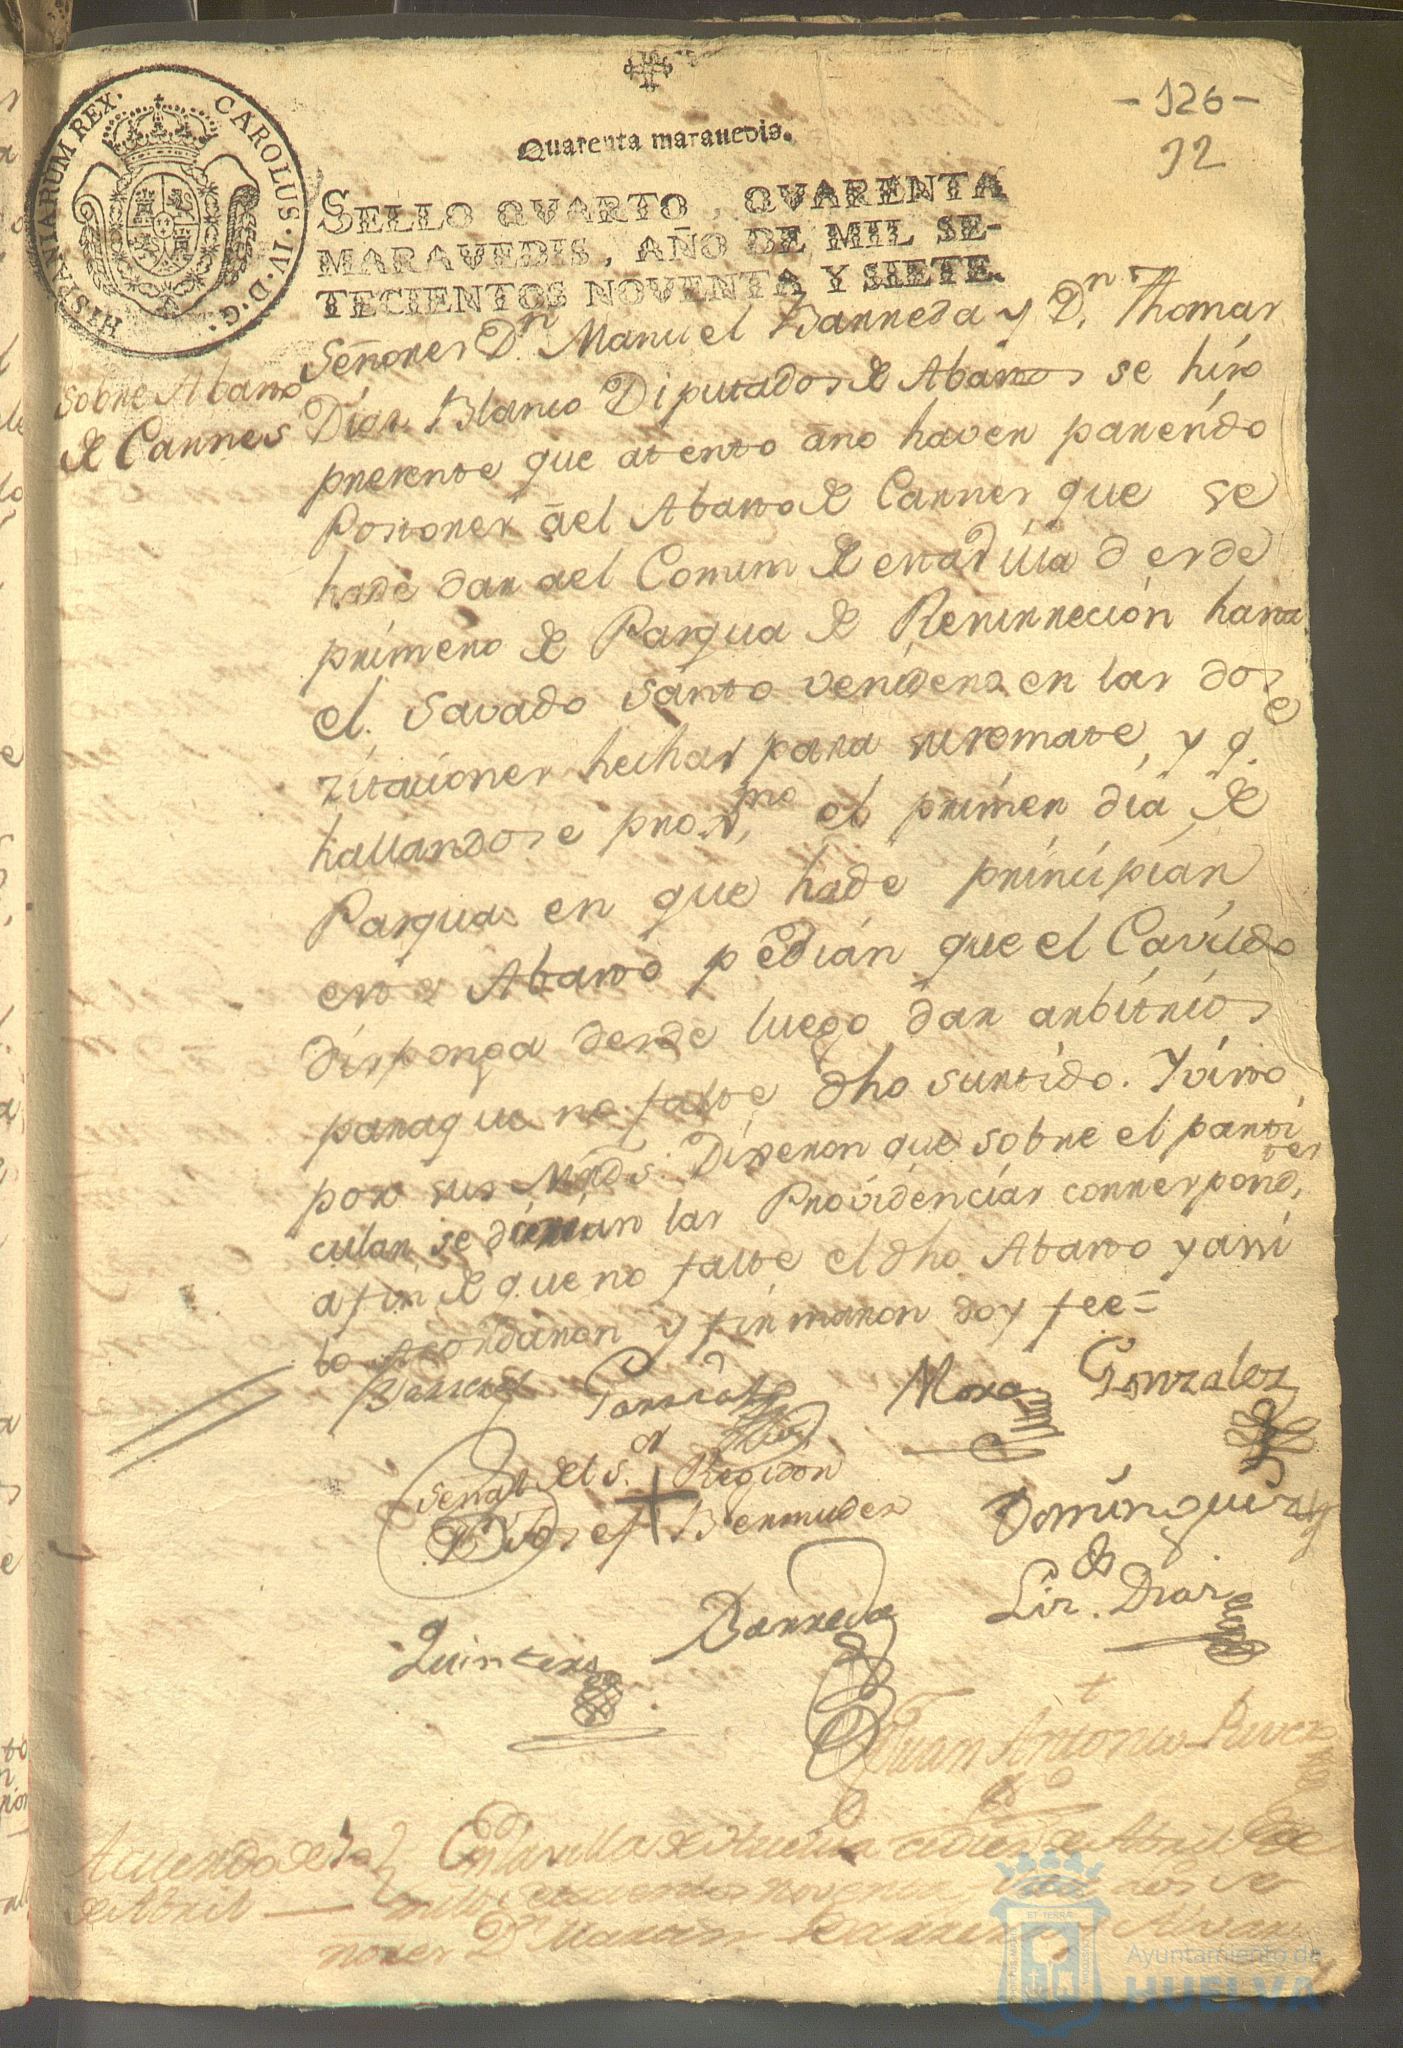 HISPANIARUM REX. CAROLUS · IV · D · G ·
Quarenta marauedis.
- 126 -
12
SELLO QVARTO, QVARENTA
MARAVEDIS, AÑO DE MIL SE-
TECIENTOS NOVENTA Y SIETE.
sobre Abasto
de Carnes
Señores Dn. Manuel Barreda y Dn. Thomas
Dias Blanco Diputados de Abastos se hiso
presente que atento áno haver parecído
Postores áel Abasto de Carnes que se
hade dar áel Comun de esta Villa desde
primero de Pasqua de Resurrección hasta
el Savado santo venidero en las dos
zitaciones hechas para su remate, y q.e
hallandose prox.mo el primer dia de
Pasqua en que hade principiar
este Abasto pedian que el Cavildo
disponga desde luego dar arbitrios
paraque no falte dho surtido. Y visto
por sus Mrds. Dixeron que sobre el parti
cular se darian las Providencias correspond.tes
a fin de que no falte el dho Abasto y assi
lo Acordaron y firmaron doy fee=
Mora Gonzalez
señal del s.or Regidor
Dn Josef + Bermudez
Dominguez
Quintero Barreda Liz.do Dias
Juan Antonio
Acuerdo de 10
de Abril
En la villa de Huelva a dies de Abril de
mill setecientos noventa y siete los se
nores Dn
Ayuntamiento de
HUELVA